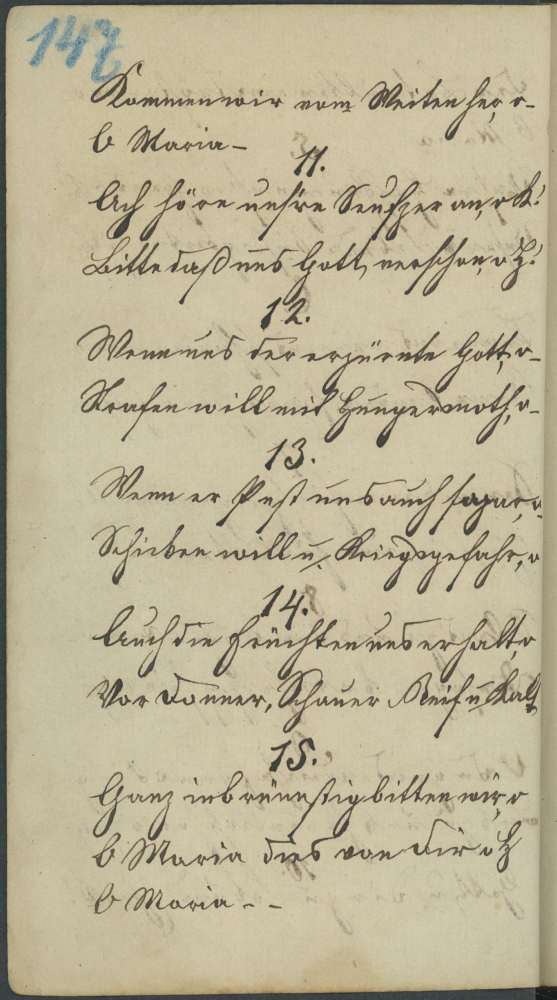 147
Kommen wir vom Weiten her, o-
O Maria -
11.
Ach höre unsre Seufzer an, o M!
Bitte daß uns Gott verschon, o H!
12.
Wenn uns der erzürnte Gott, o-
Strafen will mit Hungersnoth, o-
13.
Wenn er Pest uns auch sogar, o
Schicken will u. Kriegsgefahr, o
14.
Auch die Früchten uns erhalt, o
Vor Donner, Schauer Reif u Kalt
15.
Ganz inbrünnstig bitten wir, o
O Maria dies von dir o H
O Maria - -